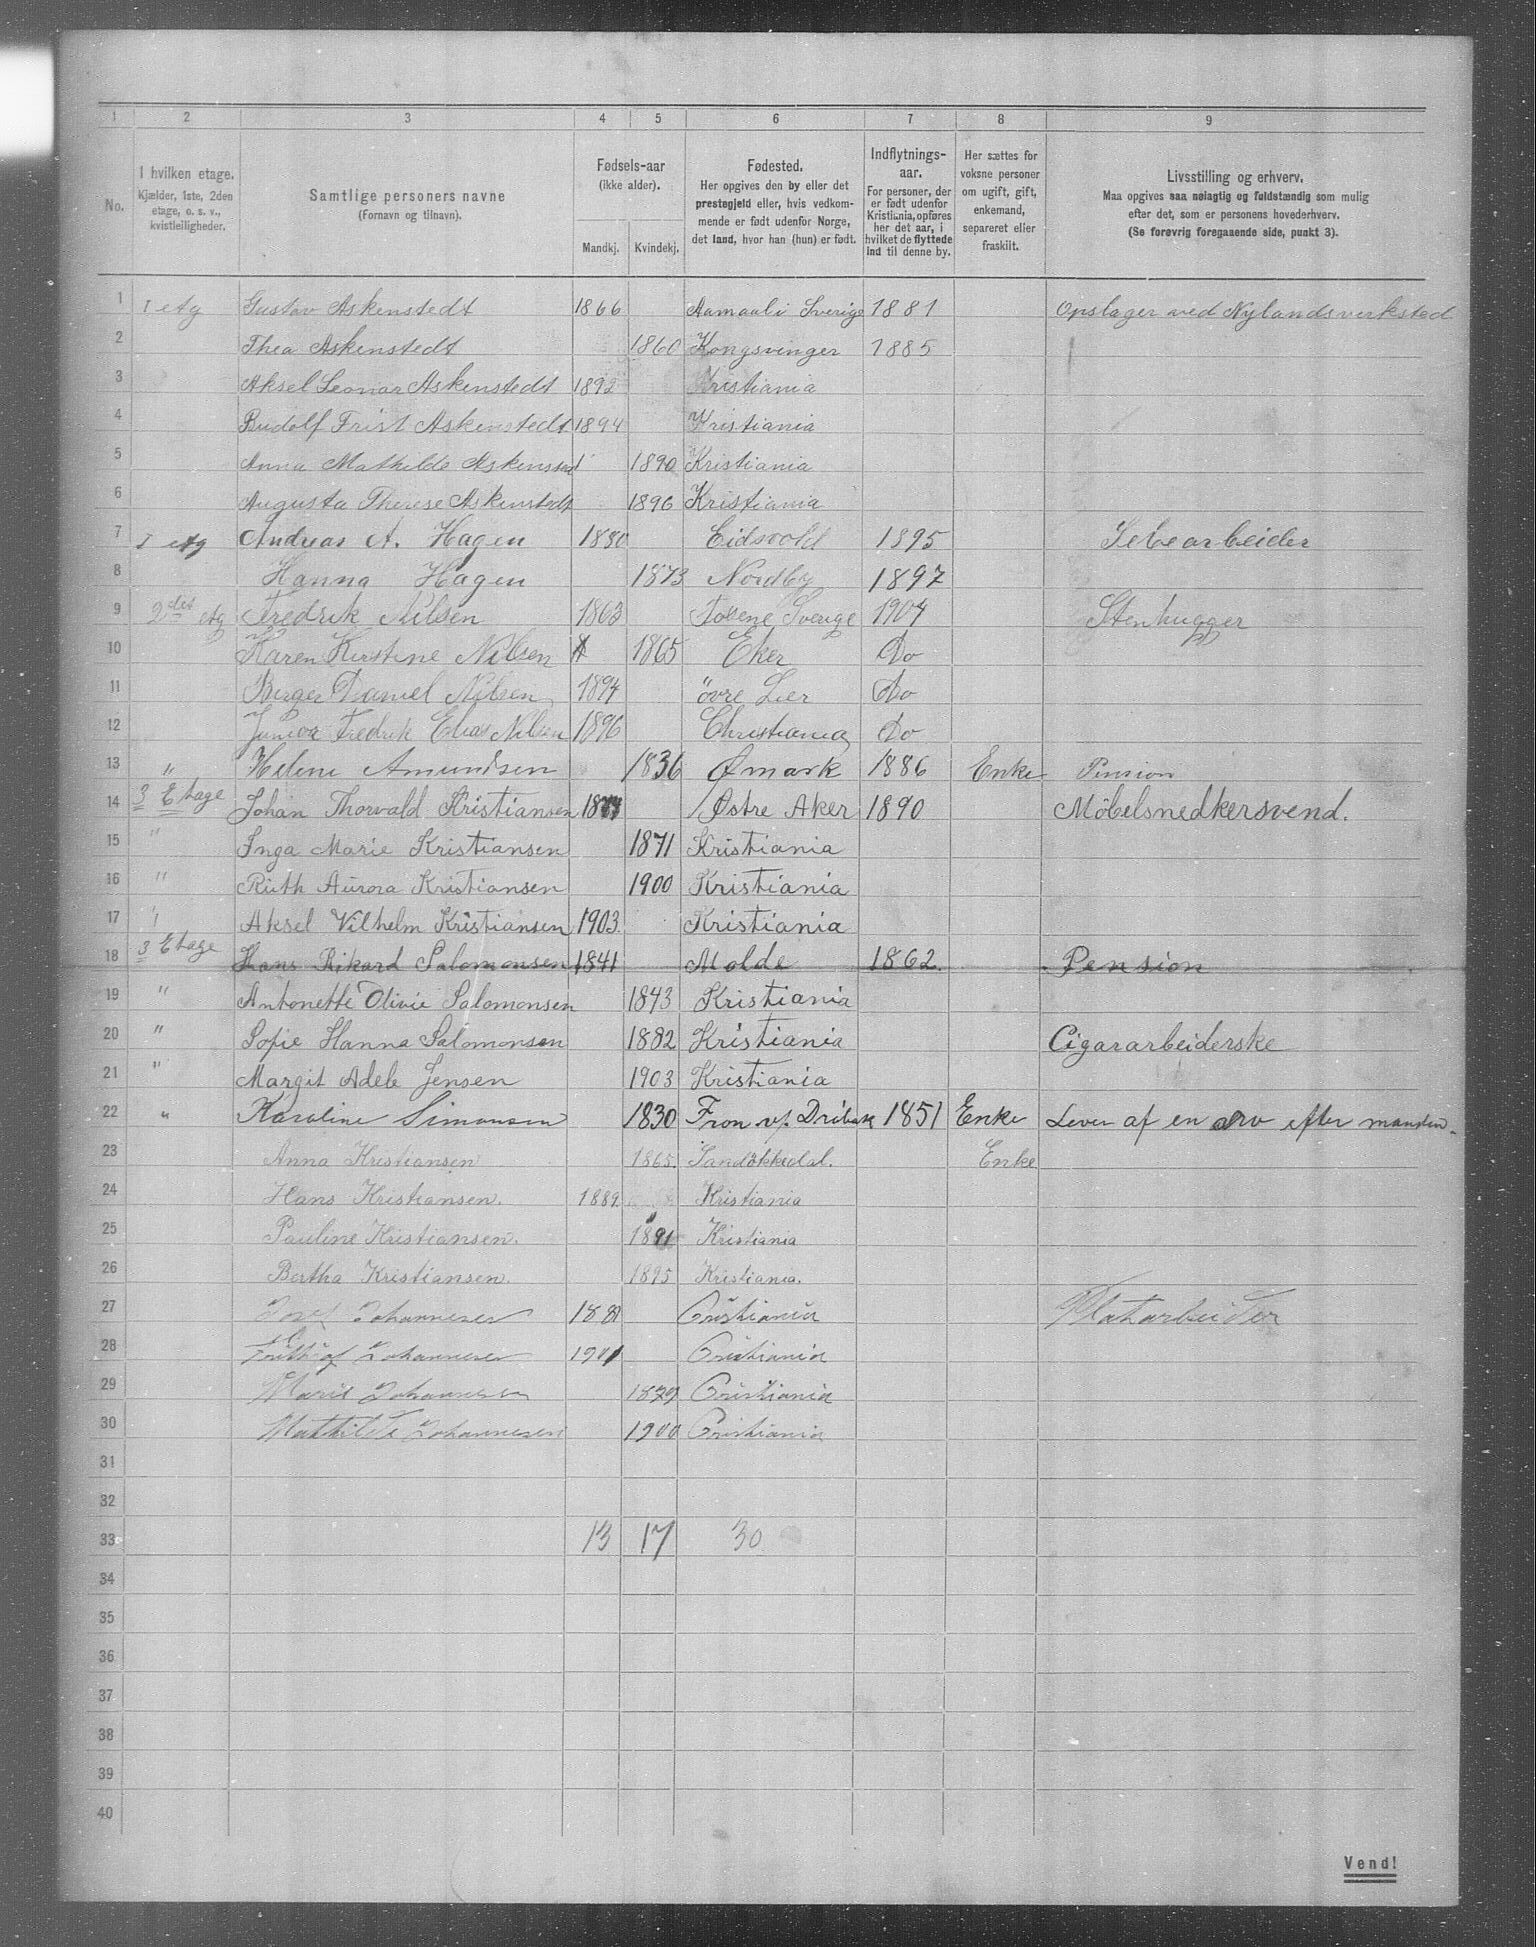 1 2 3 4 5 6 7 8 9
No.
I hvilken etage.
Kjælder, 1ste, 2den
etage, o. s. v.,
kvistleiligheder.
Samtlige personers navne
(Fornavn og tilnavn).
Fødsels-aar
(ikke alder).
Mandkj. Kvindekj.
Fødested.
Her opgives den by eller det
prestegjeld eller, hvis vedkom-
mende er født udenfor Norge,
det land, hvor han (hun) er født.
Indflytnings-
aar.
For personer, der
er født udenfor
Kristiania, opføres
her det aar, i
hvilket de flyttede
ind til denne by.
Her sættes for
voksne personer
om ugift, gift,
enkemand,
separeret eller
fraskilt.
Livsstilling og erhverv.
Maa opgives saa nøiagtig og fuldstændig som mulig
efter det, som er personens hovederhverv.
(Se forøvrig foregaaende side, punkt 3).
1 I etg Gustav Askenstedt 1866 Aamaal i Sverige 1881 Opslager ved Nylandsverksted
2 Thea Askenstedt 1860 Kongsvinger 1885
3 Aksel Leonar Askenstedt 1892 Kristiania
4 Rudolf Frist Askenstedt 1894 Kristiania
5 Anna Mathilde 1890 Kristiania
6 Augusta Therese Askenstedt 1896 Kristiania
7 I etg Andreas A. Hagen 1880 Eidsvold 1895
8 Hanna Hagen 1873 Nordby 1897
9 2den etg Fredrik Nilsen 1863 Sverige 1904 Stenhugger
10 Karen Kirstine Nilsen 1865 Eker Do
11 Birger Daniel Nilsen 1894 övre Lier Do
12 Junior Fredrik Elias Nilsen 1896 Christiania Do
13 " Helene Amundsen 1836 Ømark 1886 Enke Pension
14 3 Etage Johan Thorvald Kristiansen Østre Aker 1890 Möbelsnedkersvend.
15 " Inga Marie Kristiansen 1871 Kristiania
16 " Ruth Aurora Kristiansen 1900 Kristiania
17 " Aksel Vilhelm Kristiansen 1903 Kristiania
18 3 Etage Hans Rikard Salomonsen 1841 Molde 1862 Pension
19 " Antonette Olivie Salomonsen 1843 Kristiania
20 " Sofie Hanna Salomonsen 1882 Kristiania Cigararbeiderske
21 " Margit Adele Jensen 1903 Kristiania
22 " Karoline Simonsen 1830 Fron v/. Dröbak 1851 Enke Lever af en arv efter manden.
23 Anna Kristiansen 1865. Sandökkedal. Enke
24 Hans Kristiansen. 1889. Kristiania
25 Pauline Kristiansen. 1891 Kristiania
26 Bertha Kristiansen. 1895 Kristiania.
27 Johannesen 188 Cristiania
28 Johannesen 1901 Cristiania
29 Marie Johannesen 1879 Cristiania
30 Mathilde Johannesen 1900 Cristiania
31
32
33 13 17 30
34
35
36
37
38
39
40
Vend!